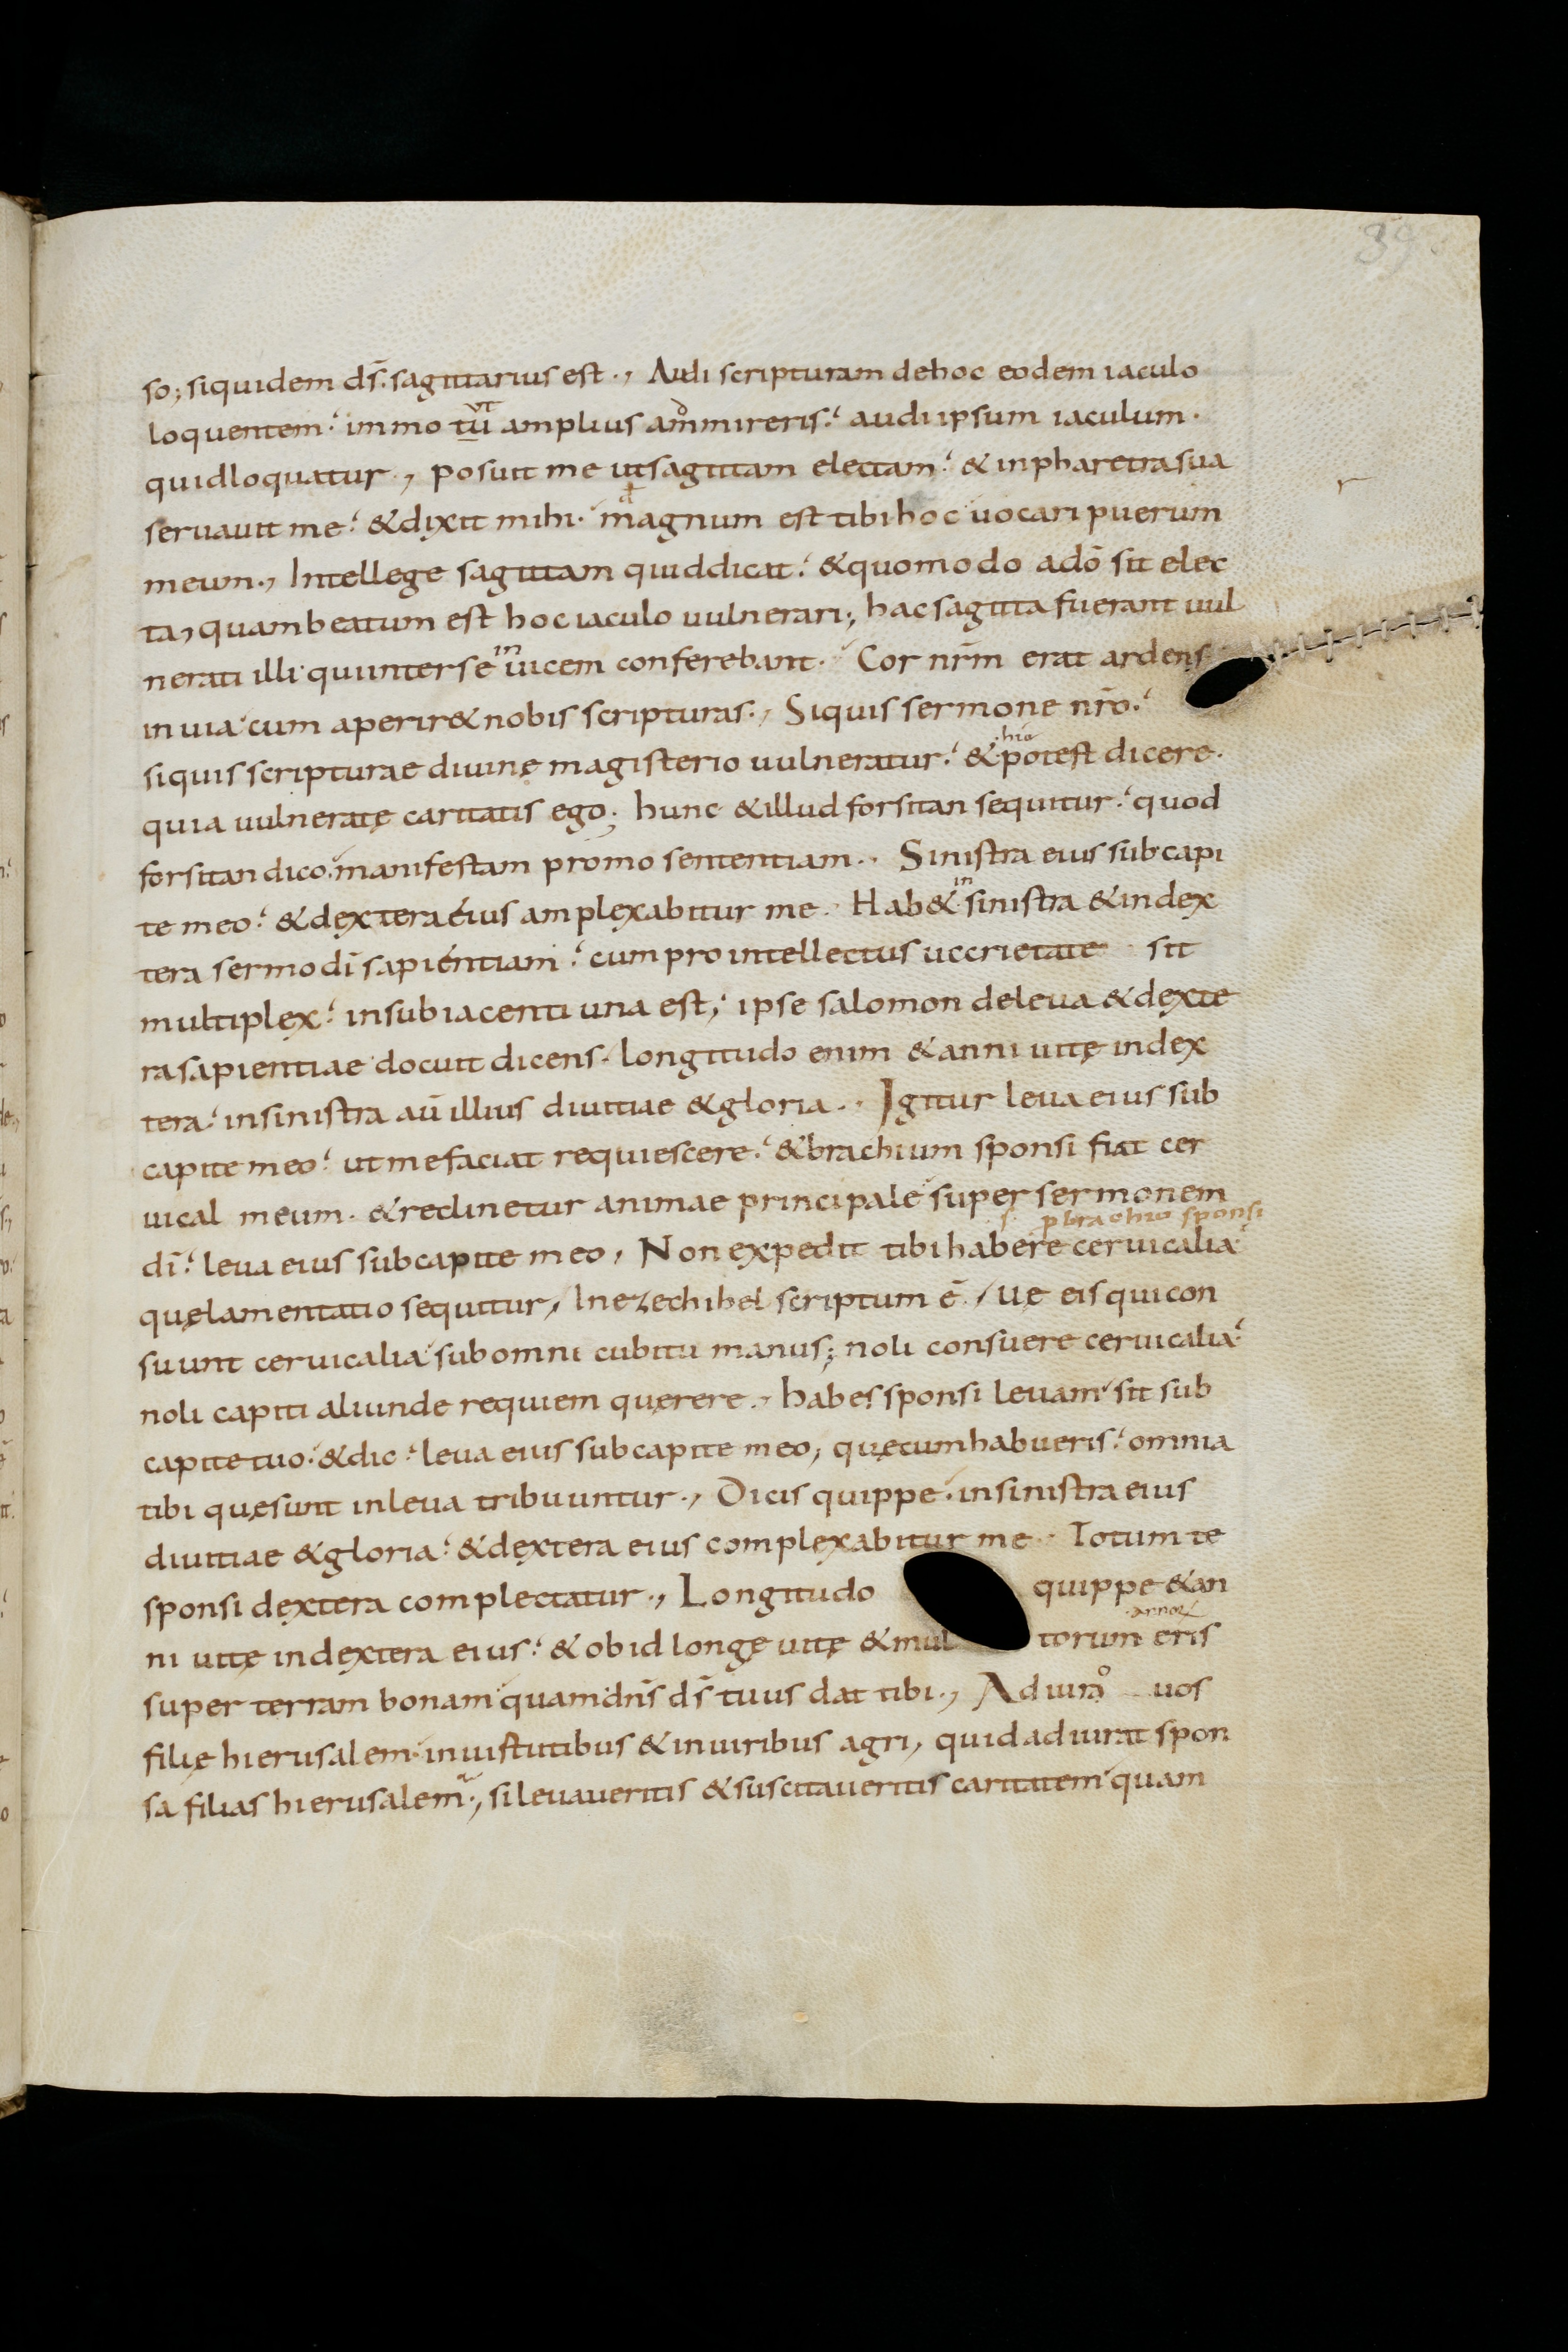 39
so; siquidem ds̄. sagittarius est., Audi scripturam dehoc eodem iaculo
loquentem: immo tū ut amplius ammireris: audi ipsum iaculum.
quidloquatur., posuit me utsagittam electam: & inpharetrasua
seruauit me: &dixit mihi. magnum est tibihoc uocari puerum
meum., Intellege sagittam quiddicat: &quomodo adō sit elec
ta, quambeatum est hociaculo uulnerari; hacsagitta fuerant uul
nerati illi quiinterse inuicem conferebant. Cor nr̄m erat ardens
inuia cum aperir& nobis scripturas., Siquis sermone nr̄o:
siquis scripturae diuinę magisterio uulneratur: & hic potest dicere.
quia uulneratę caritatis ego; hunc &illud forsitan sequitur: quod
forsitan dico. manifestam promo sententiam.. Sinistra eius subcapi
te meo: &dexteraeius amplexabitur me. Hab& in sinistra &index
tera sermo dī sapientiam: cum prointellectus uccrietate sit
multiplex: insubiacenti una est; ipse salomon deleua &dexte
rasapientiae docuit dicens. longitudo enim &anni uitę index
tera: insinistra aū illius diuitiae &gloria.. Igitur leua eius sub
capitemeo: utmefaciat requiescere: &brachium sponsi fiat cer
uical meum. &reclinetur animae principale super sermonem
s. p brachio sponsi
dī: leua eius subcapite meo, Non expedit tibihabere ceruicalia
quęlamentatio sequitur, Inezechihel scriptum ē., Uę eis quicon
suunt ceruicalia subomni cubitu manus; noli consuere ceruicalia:
noli capiti aliunde requiem quęrere., habes sponsi leuam sit sub
capitetuo. &dic: leua eius subcapite meo, quęcumhabueris: omnia
tibi quęsunt inleua tribuuntur., Dicis quippe. insinistra eius
diuitiae &gloria: &dextera eius complexabitur me.. Totum te
sponsi dextera complectatur., Longitudo quippe &an
ni uitę indextera eius: & obid longę uitę &mul torum annoꝝ eris
super terram bonam quamdn̄s ds̄ tuus dat tibi., Adiuro uos
filię hierusalem. inuistutibus &inuiribus agri, quidadiurat spon
sa filias hierusalem., sileuaueritis &suscitaueritis caritatem quam